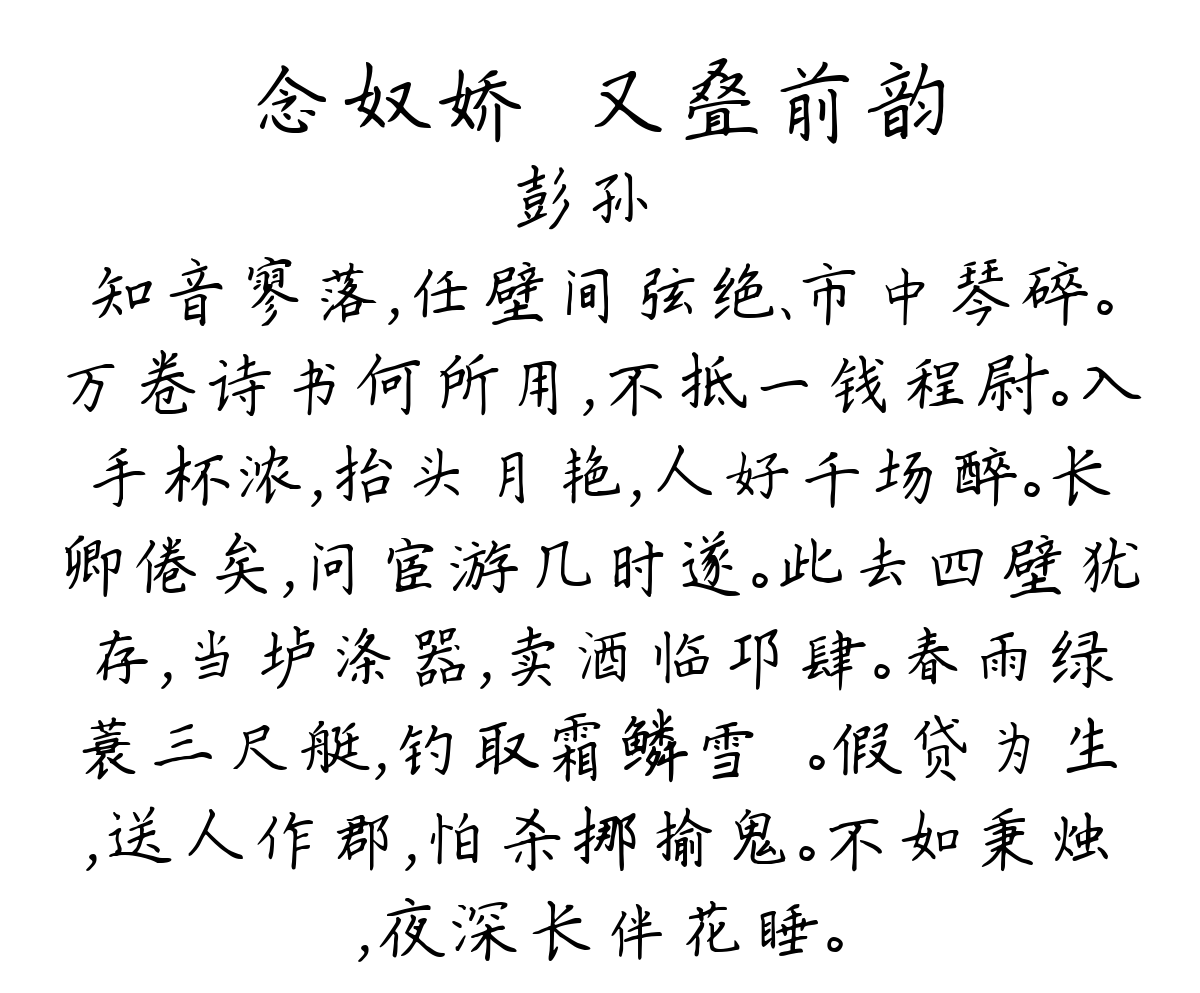 念奴娇 又叠前韵
彭孙
知音寥落,任壁间弦绝、市中琴碎。
万卷诗书何所用,不抵一钱程尉。入
手杯浓,抬头月艳,人好千场醉。长
卿倦矣,问宦游几时遂。此去四壁犹
存,当垆涤器,卖酒临邛肆。春雨绿
蓑三尺艇,钓取霜鳞雪 。假贷为生
,送人作郡,怕杀挪揄鬼。不如秉烛
,夜深长伴花睡。